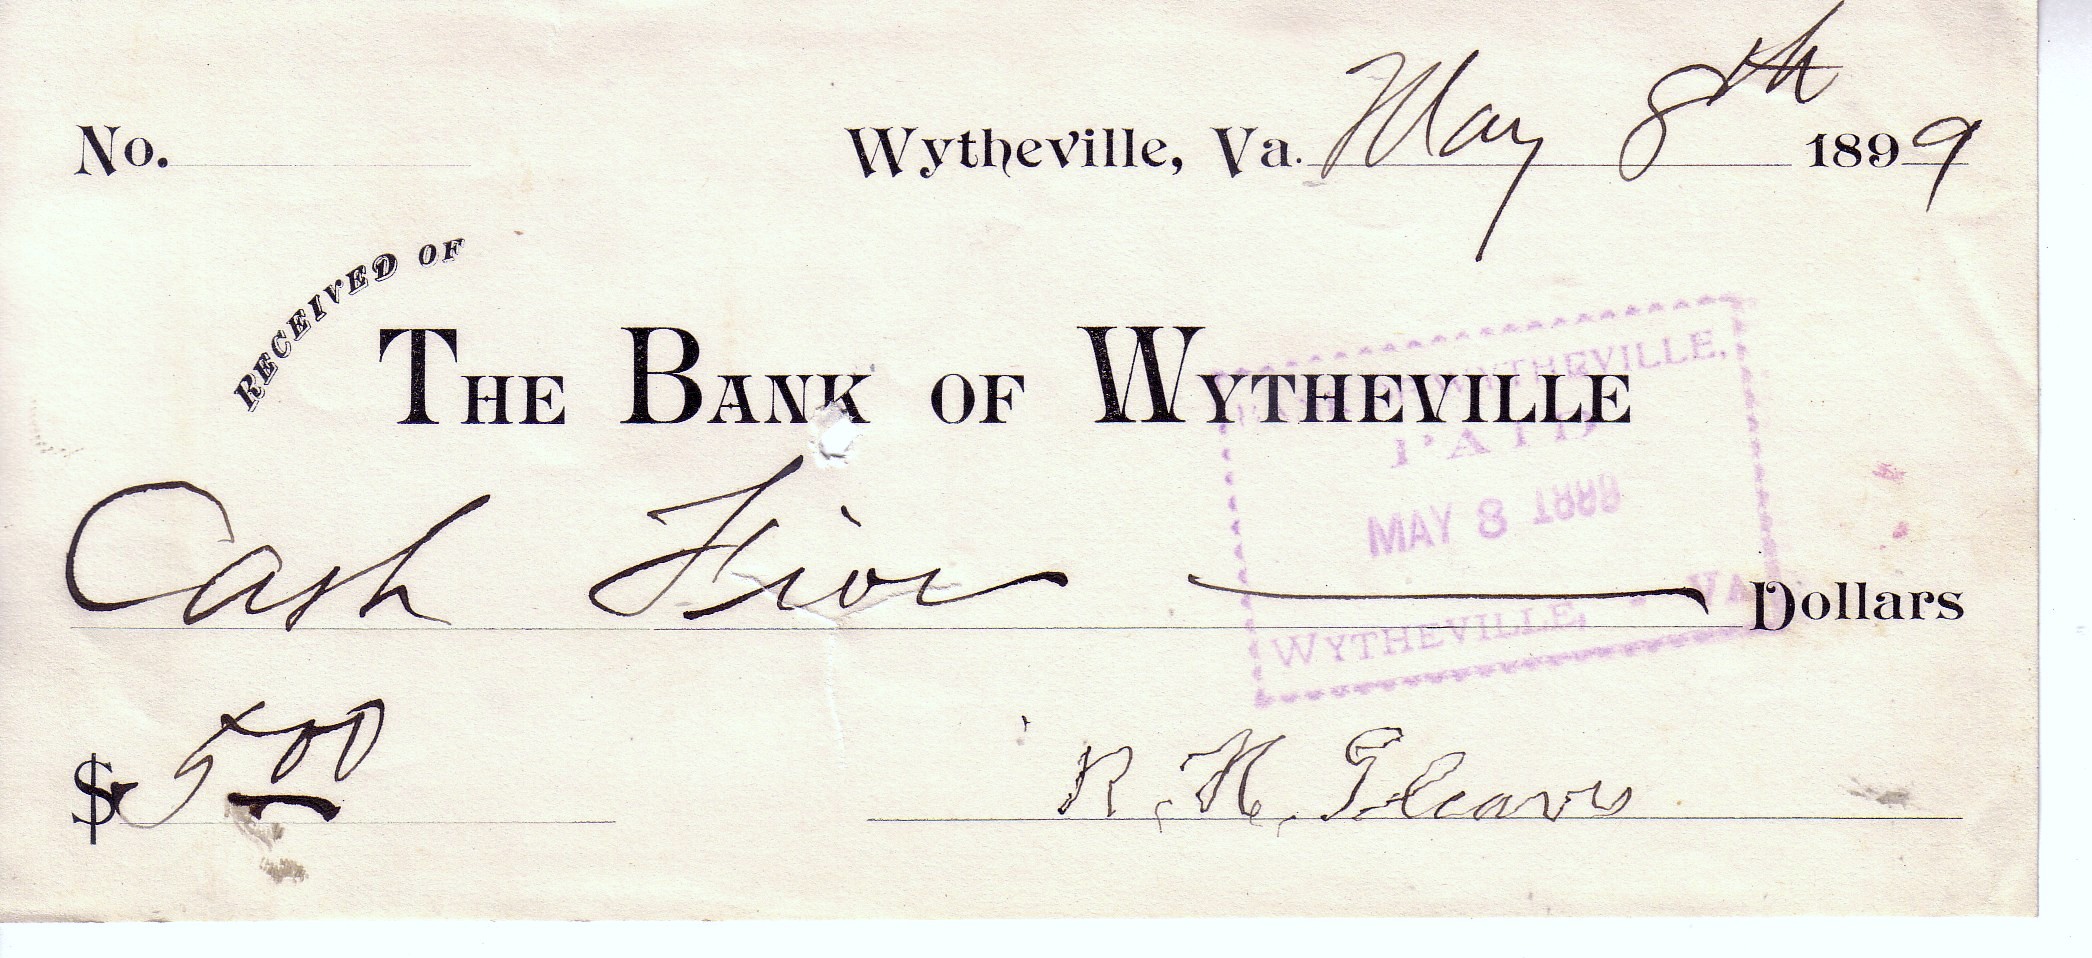 No. Wytheville, Va. May 8th 1899
RECEIVED OF
THE BANK OF WYTHEVILLE
WYTHEVILLE,
PAID
MAY 8 1899
Cash Five Dollars
WYTHEVILLE, - VA
$5.00
R. H. Gleaves